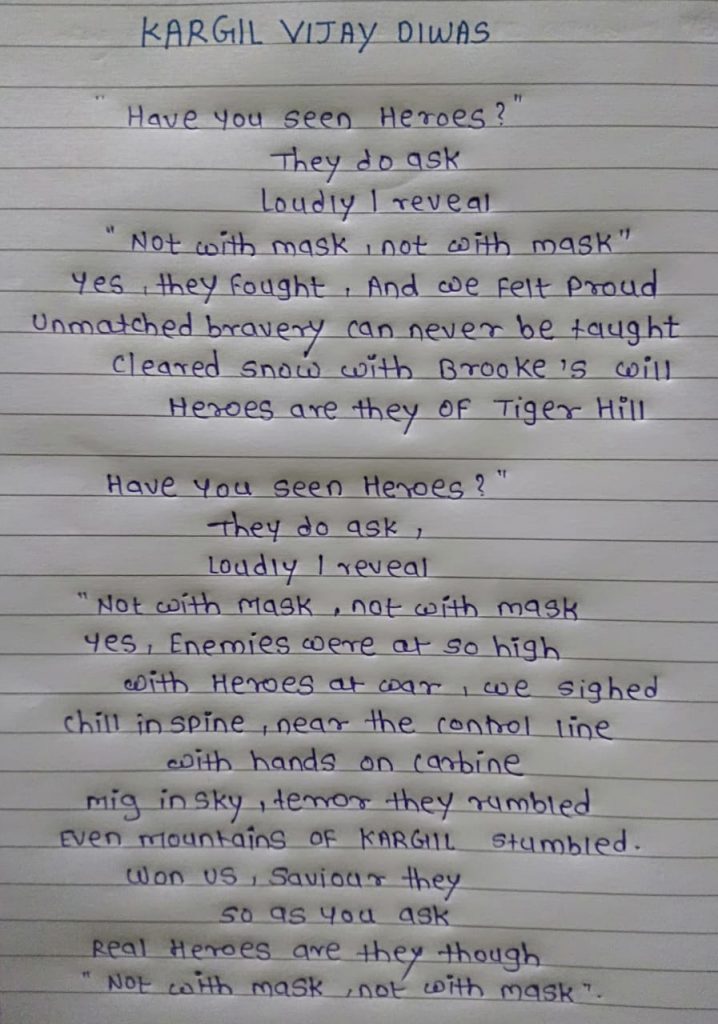 KARGIL VIJAY DIWAS
"Have you seen Heroes?"
They do ask
Loudly I reveal
"Not with mask, not with mask"
Yes, they fought, And we felt proud
Unmatched bravery can never be taught
Cleared snow with Brooke's will
Heroes are they of Tiger Hill
Have you seen Heroes?"
They do ask,
Loudly I reveal
"Not with mask, not with mask
Yes, Enemies were at so high
with Heroes at war, we sighed
Chill in spine, near the control line
with hands on carbine
mig in sky, terror they rumbled
Even mountains of KARGIll stumbled.
Won us, Saviour they
so as you ask
Real Heroes are they though
"Not with mask, not with mask".